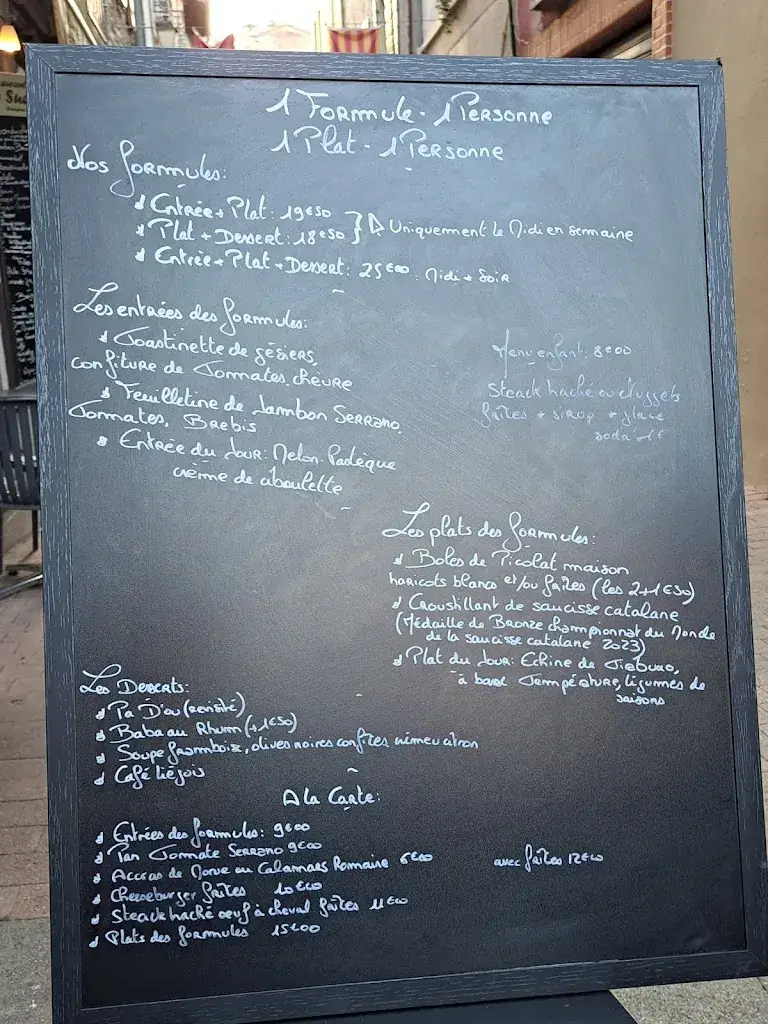 1 Formule - 1 Personne
1 Plat - 1 Personne
Nos formules:
Entrée + Plat: 19€50
Plat + Dessert: 18€50 } Uniquement le Midi en semaine
Entrée + Plat + Dessert: 25€00. Midi + Soir
Les entrées des formules:
Toastinette de gésiers,
confiture de Tomates, chèvre
Feuilletine de Jambon Serrano,
Tomates, Brebis
Entrée du Jour: Melon-Pastèque
crème de ciboulette
Menu enfant: 8€00
Steack haché ou Nuggets
frites + sirop + glace
soda +1€
Les plats des formules:
Boles de Picolat maison
haricots blancs et/ou frites (les 2 +1€50)
Croustillant de saucisse catalane
(Médaille de Bronze championnat du Monde
de la saucisse catalane 2023)
Plat du Jour: Echine de
à basse Température, légumes de
saisons
Les Desserts:
Pa D'ou (revisité)
Baba au Rhum (+1€50)
Soupe framboise, olives noires confites citron
Café liégeois
A la Carte:
Entrées des formules: 9€00
Pan Tomate Serrano 9€00
Accras de Morue ou Calamars Romaine 6€00 avec frites 12€00
Cheeseburger frites 10€00
Steack haché oeuf à cheval frites 11€00
Plats des formules 15€00